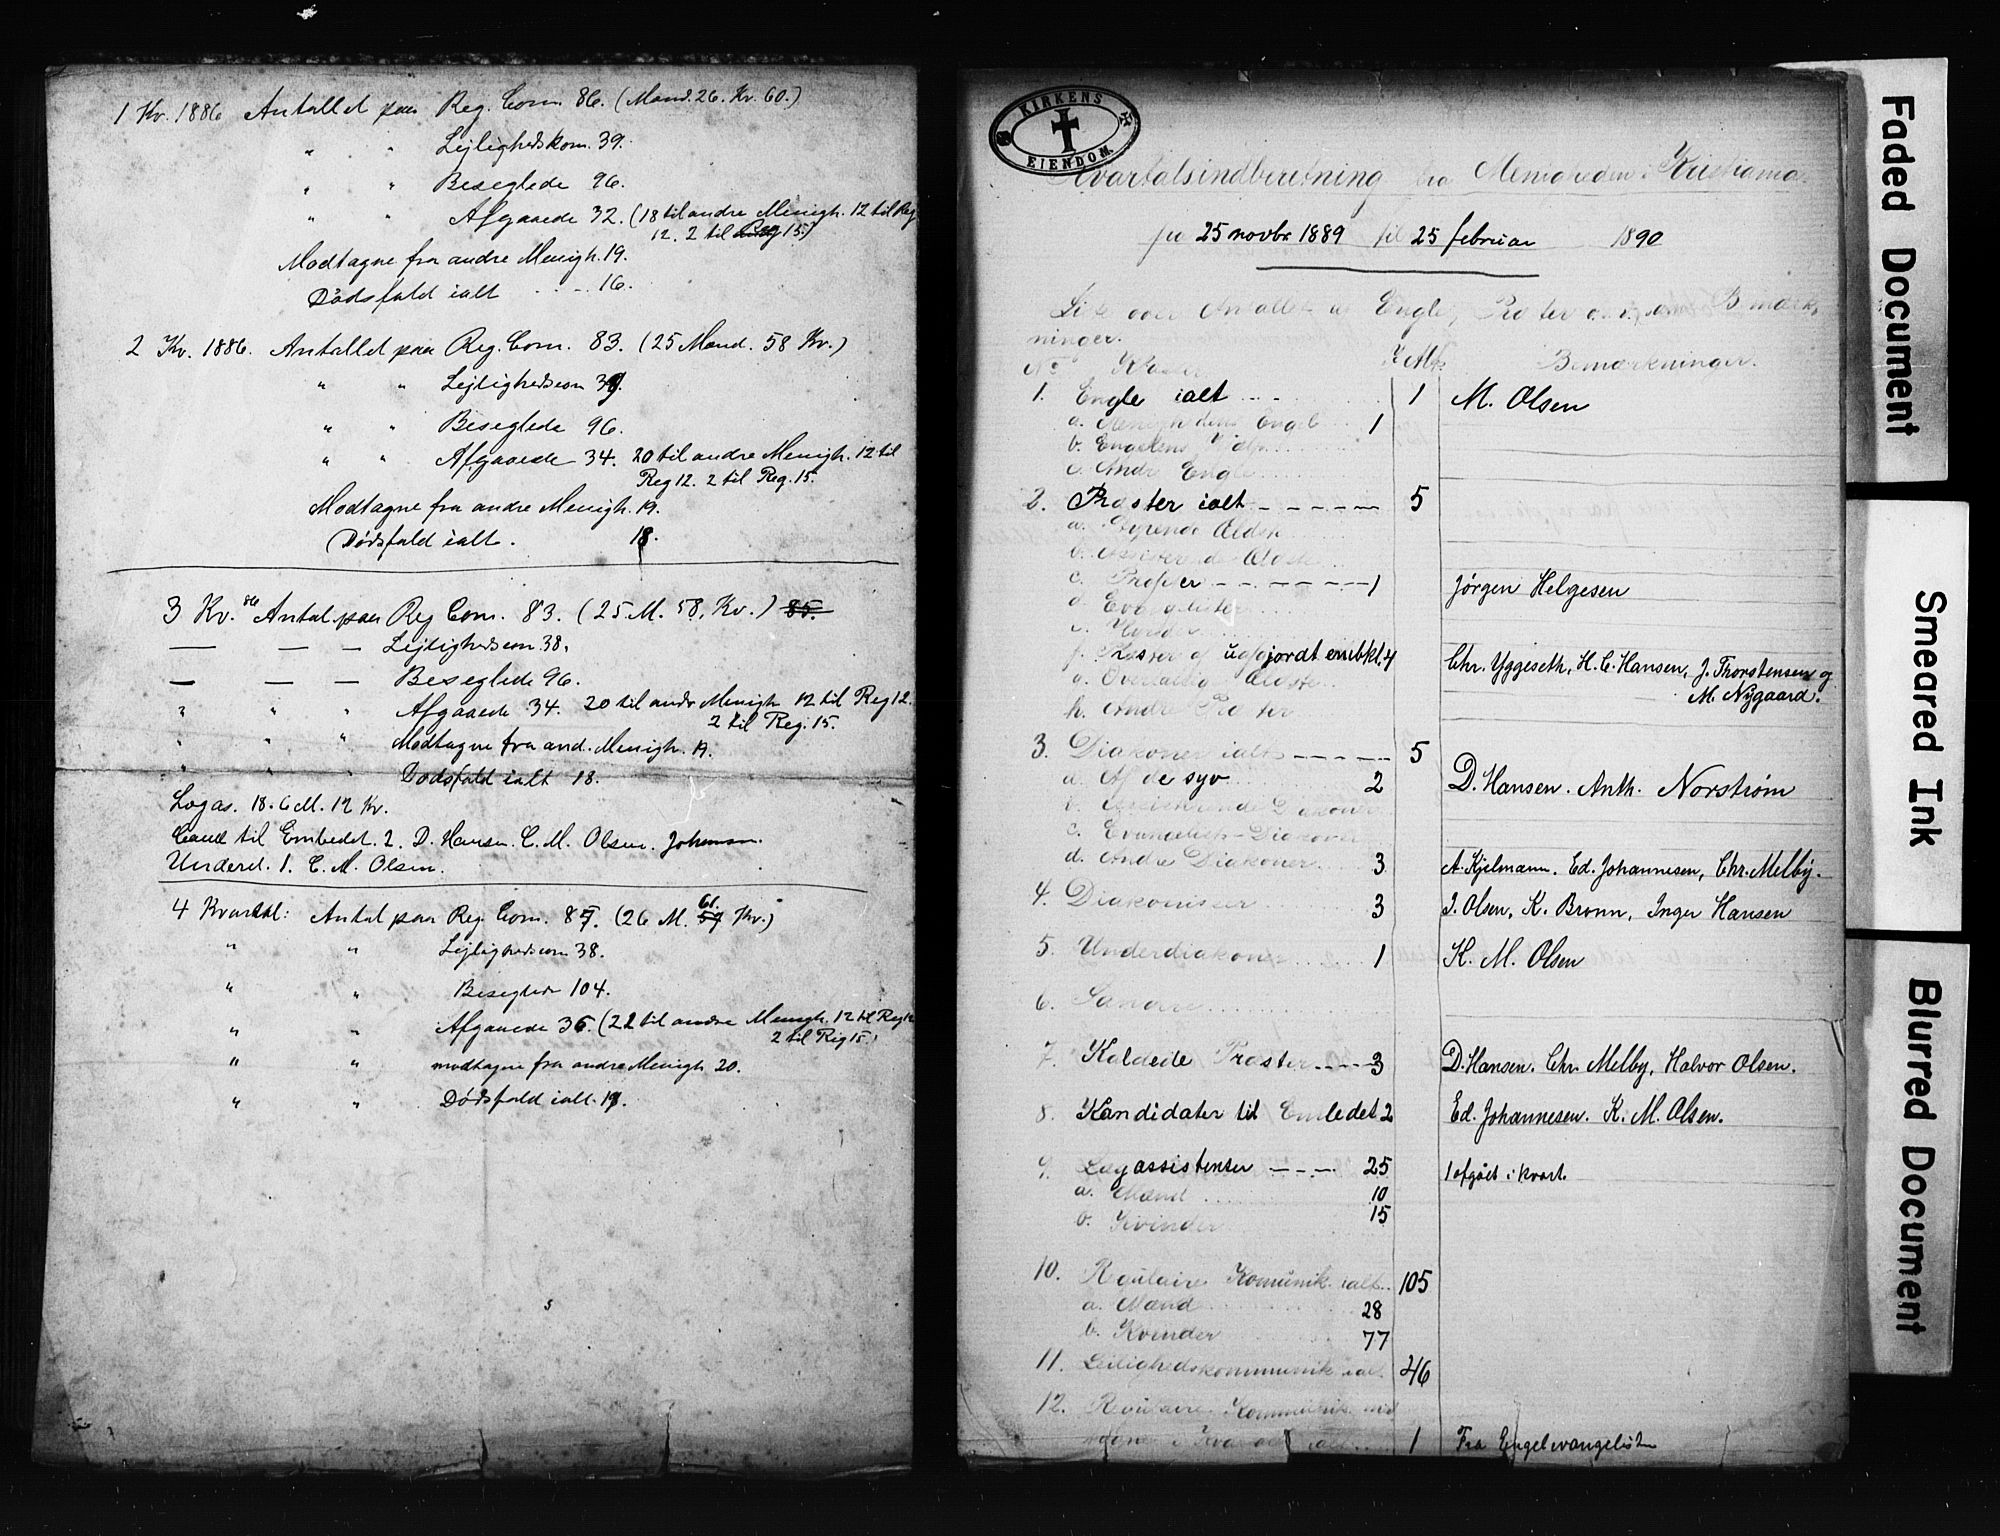 1 Kv. 1886 Antallet paa Reg. Com. 86. (Mænd. 26. Kv. 60.)
" " Lejlighedskom. 39.
" " Beseglede 96.
" " Afgaaede 32. (18 til andre Menigh. 12 til Reg
12. 2 til Reg 15.)
Modtagne fra andre Menigh. 19.
Dødsfald ialt - - - 16.
2 Kv. 1886. Antallet paa Reg. Com. 83. (25 Mænd. 58 Kv.)
" " Lejlighedscom 39.
" " Beseglede 96.
" " Afgaaede 34. 20 til andre Menigh. 12 til
Reg 12. 2 til Reg. 15.
Modtagne fra andre Menigh. 19.
Dødsfald ialt. 18.
3 Kv. 86 Antal paa Reg Com. 83. (25 M. 58, Kv.) 85.
— — — Lejlighedscom 38.
— — — Beseglede 96.
" " " Afgaaede 34. 20 til andr Menigh 12 til Reg 12.
2 til Reg. 15.
" " " Modtagne fra and. Menigh. 19.
" " " Dødsfald ialt 18.
Lagas. 18. 6 M. 12 Kv.
Cand til Embedet. 2. D. Hansen. C. M. Olsen. Johannsn.
Underd. 1. C. M. Olsen.
4 Kvartal: Antal paa Reg. Com. 87. (26 M. 61. 59 Kv.)
" " Lejlighedscom 38.
" " Beseglede 104.
" " Afgaaede 36. (22 til andre Menigh. 12 til Reg 12
2 til Reg 15.)
" " modtagne fra andre Menigh 20.
" " Dødsfald ialt. 19.
KIRKENS
EIENDOM.
Kvartalsindberetning fra Menigheden i Kristiania
fra 25 novbr 1889 til 25 februar 1890
Liste over Antallet af Engle, Præster o.s.v. samt Bemærk-
ninger.
No Klasser Bemærkninger.
1. Engle ialt 1 M. Olsen
a. Menighedens Engel 1
b. Engelens Hjælp
c. Andre Engle
2. Præster ialt - - - - - - 5
a. Styrende Ældste
b. Assisterende Ældste
c. Profeter - - - - - - 1 Jørgen Helgesen
d. Evangelister
e. Hyrder
f. Præster af uafgjordt embkl. 4 Chr. Yggeseth, H. C. Hansen, J. Thorstensen og
M. Nygaard.
g. Overtallige Ældste
h. Andre Præster
3. Diakoner ialt - - - - - 5
a. Af de syv 2 D. Hansen. Anth. Norstrøm
b. Assisterende Diakoner
c. Evangelist-Diakoner
d. Andre Diakoner 3 A. Kjelmann. Ed. Johannesen, Chr. Melby.
4. Diakonisser 3 J. Olsen, K. Bronn, Inger Hansen
5. Underdiakoner 1 K. M. Olsen
6. Sangere
7. Kaldede Præster - - - - 3 D. Hansen. Chr. Melby. Halvor Olsen.
8. Kandidater til Embedet 2 Ed. Johannesen. K. M. Olsen.
9. Lægassistenter - - - - 25 1 afgået i kvart.
a. Mænd 10
b. Kvinder 15
10. Regulaire Komunik. ialt 105
a. Mænd 28
b. Kvinder 77
11. Leilighedskommunik. ialt 46
12. Regulaire Kommunik. mod
tagne i Kvartalet ialt 1 Fra Engelevangelisten
Faded Document
Smeared Ink
Blurred Document